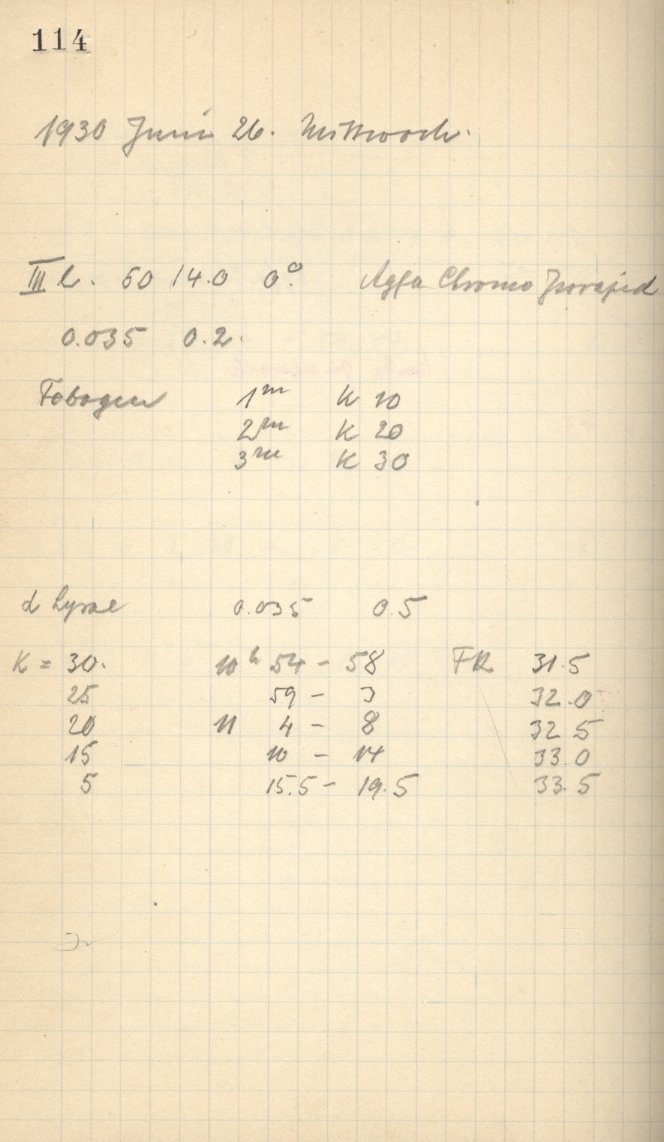 114
1930 Juni 26. Mittwoch.
III b. 60 14.0 0° Agfa Chromo Isorapid
0.035 0.2.
1m K 10
2m K 20
3m K 30
α Lyrae 0.035 0.5
K = 30. 10h 54 - 58 FR 31.5
25 59 - 3 32.0
20 11 4 - 8 32.5
15 10 - 14 33.0
5 15.5 - 19.5 33.5